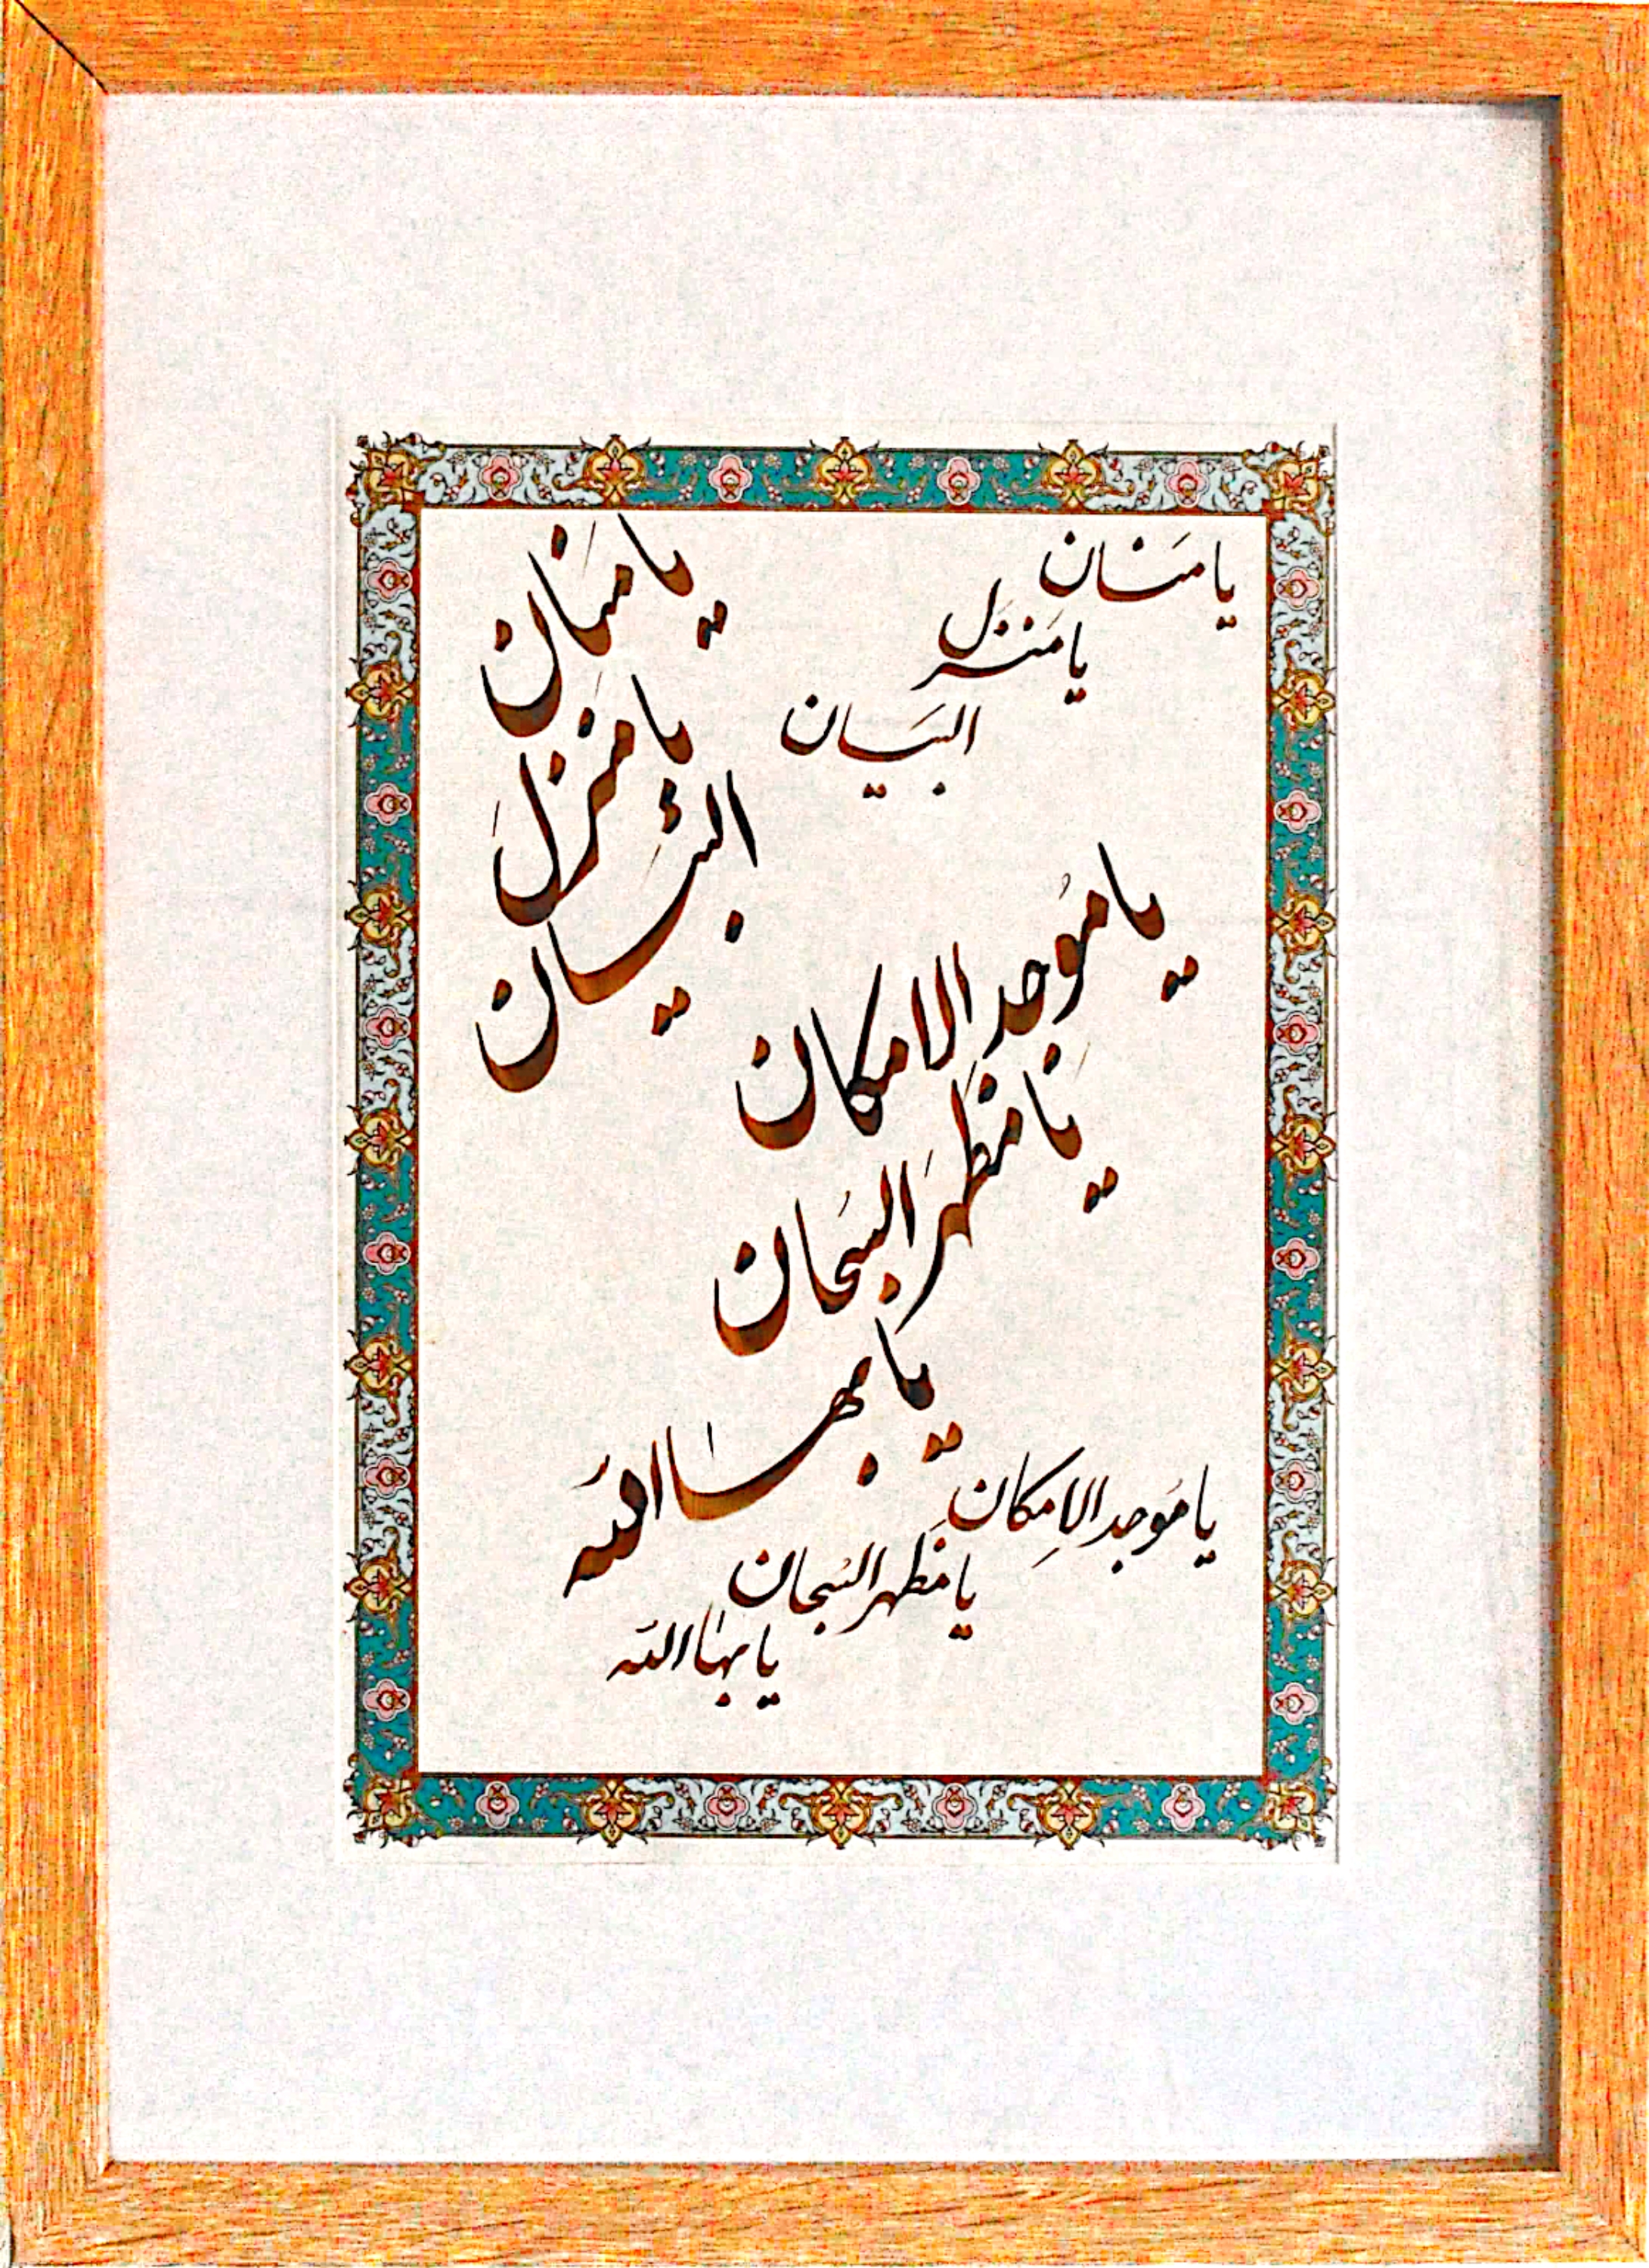 یا مَنان
یا مَنزَل
البَیان
یا منان
یا منزل
البَیان
یا موُجد الامکان
یا مَظهَر السُبحان
یا بهاالله
یا مَوجد الاِمکان
یا مَظهر السُبحان
یا بهاالله